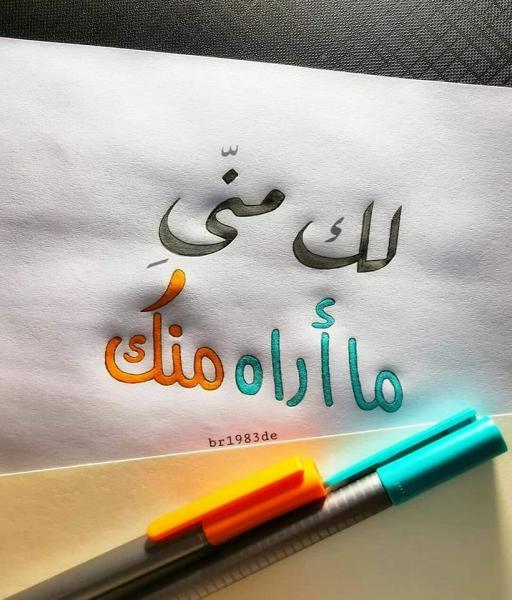 لك منّىِ
ما أراه منكُ
br1983de